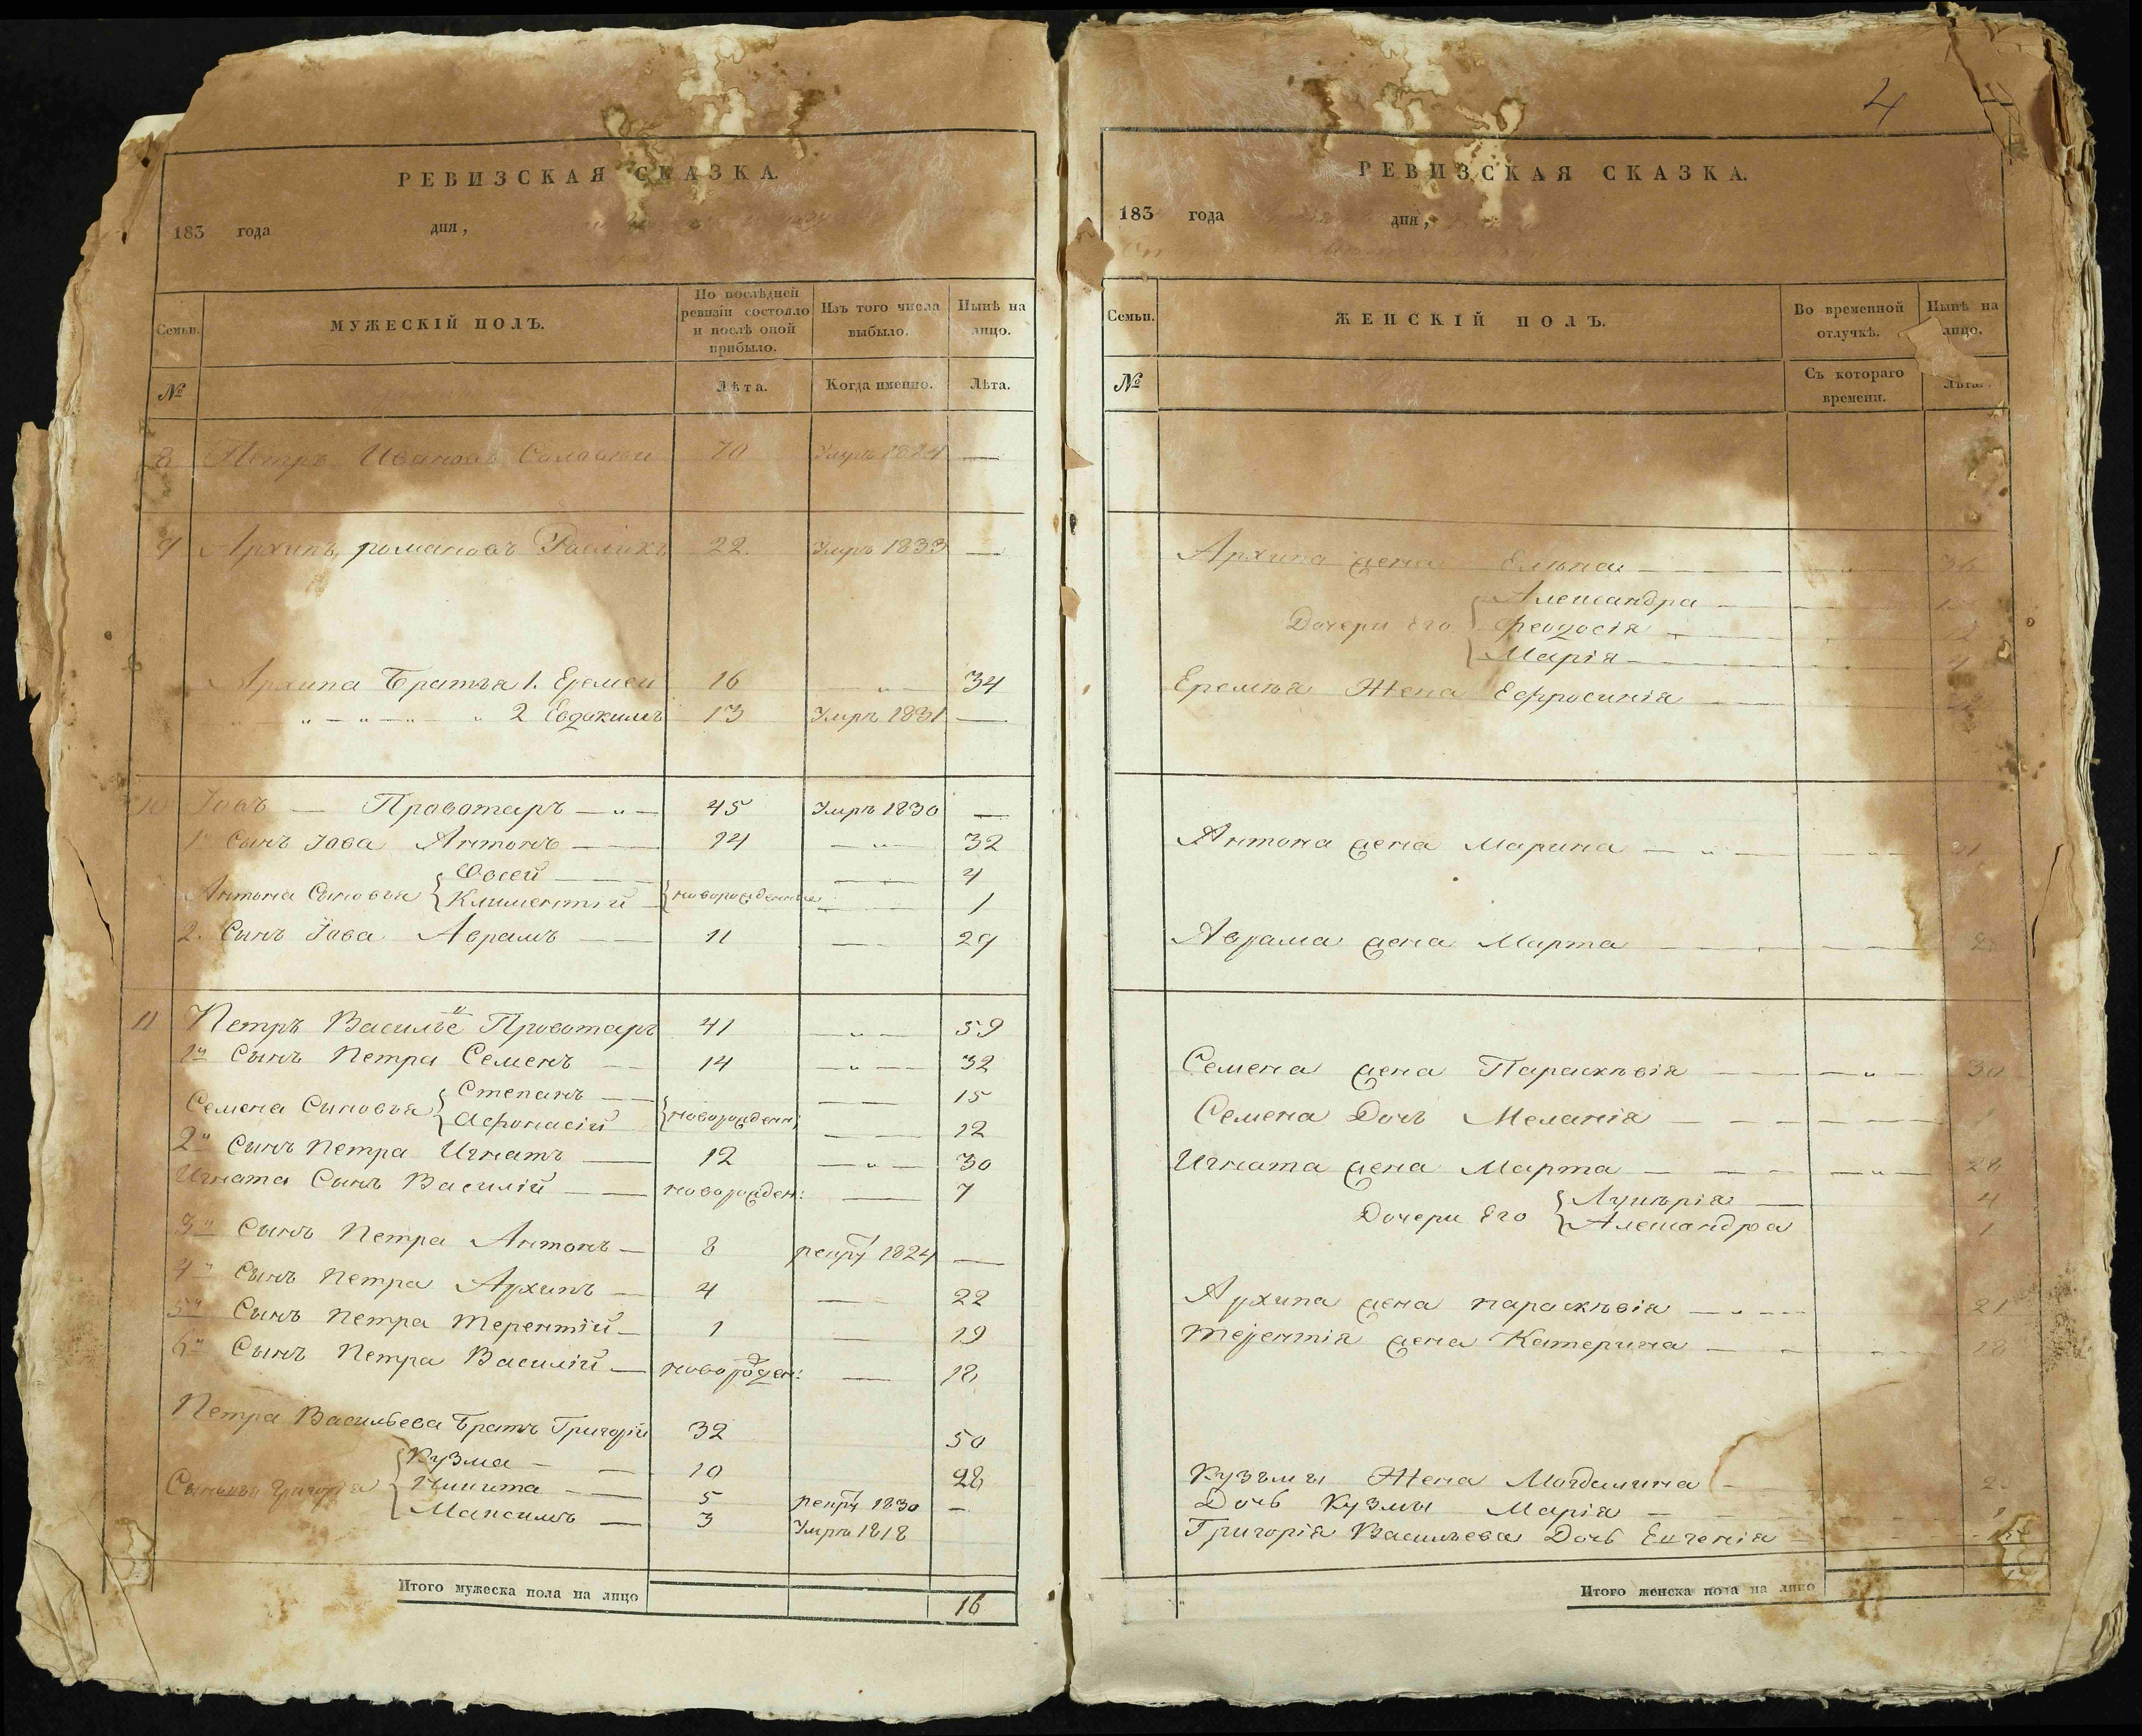 РЕВИЗСКАЯ СКАЗКА.
183 года дня,
Семьи.
МУЖЕСКІЙ ПОЛЪ.
По послѣдней ревизіи состояло и послѣ оной прибыло.
Изъ того числа выбыло.
Нынѣ на лицо.
№
Лѣта.
Когда именно.
Лѣта.
8 Петръ Иванов 70 Умръ 1824 —
9 Архипъ романовъ 22. Умръ 1833 —
Архипа Братья 1. Еремей 16 — „ — 34
„ — „ — „ — „ 2 Евдокимъ 13 Умръ 1831 —
10 Іовъ — Правотаръ — „ — 45 Умръ 1830 —
1й Сынъ Іова Антонъ — 14 — „ — 32
Овсей — — 4
Антона Сыновья Климентій новорожденные — 1
2. Сынъ Іова Аврамъ — 11 — 29
11 Петръ Василье Провотаръ 41 — „ — 59
1й Сынъ Петра Семенъ — 14 — „ — 32
Степанъ — — 15
Семена Сыновья Афонасій новорожденн: — 12
2й Сынъ Петра Игнатъ — 12 — „ — 30
Игната Сынъ Василій — новорожден: — 7
3й Сынъ Петра Антонъ — 8 рекру 1824 —
4й Сынъ Петра Архипъ — 4 — 22
5й Сынъ Петра Терентій — 1 — 19
6й Сынъ Петра Василій — новорожден: — 18
Петра Васильева Братъ Григорій 32 50
Кузма — 10 28
Сыновья Григорія Никита — 5 рекру 1830 —
Максимъ — 3 Умръ 1818
Итого мужеска пола на лицо 16
4
РЕВИЗСКАЯ СКАЗКА.
183 года дня,
Семьи.
ЖЕНСКІЙ ПОЛЪ.
Во временной отлучкѣ.
Нынѣ на лицо.
№
Съ котораго времени.
Лѣта.
Архипа жена Елена — „ 36
Александра —
Дочери Его Феодосія — 12
Марія —
Еремѣя Жена Ефросинія —
Антона жена Марина — „ —
Аврама жена Марта —
Семена жена Параскѣвія — „ — 30
Семена Дочь Меланія —
Игната жена Марта — „ — 28
Лукѣрія — 4
Дочери Его Александра 1
Архипа жена параскѣвія — „ — 21
Терентія жена Катерина — 18
Кузьмы Жена Магдалина —
Дочь Кузмы Марія —
Григорія Васильева Дочь Евгенія
Итого женска пола на лицо